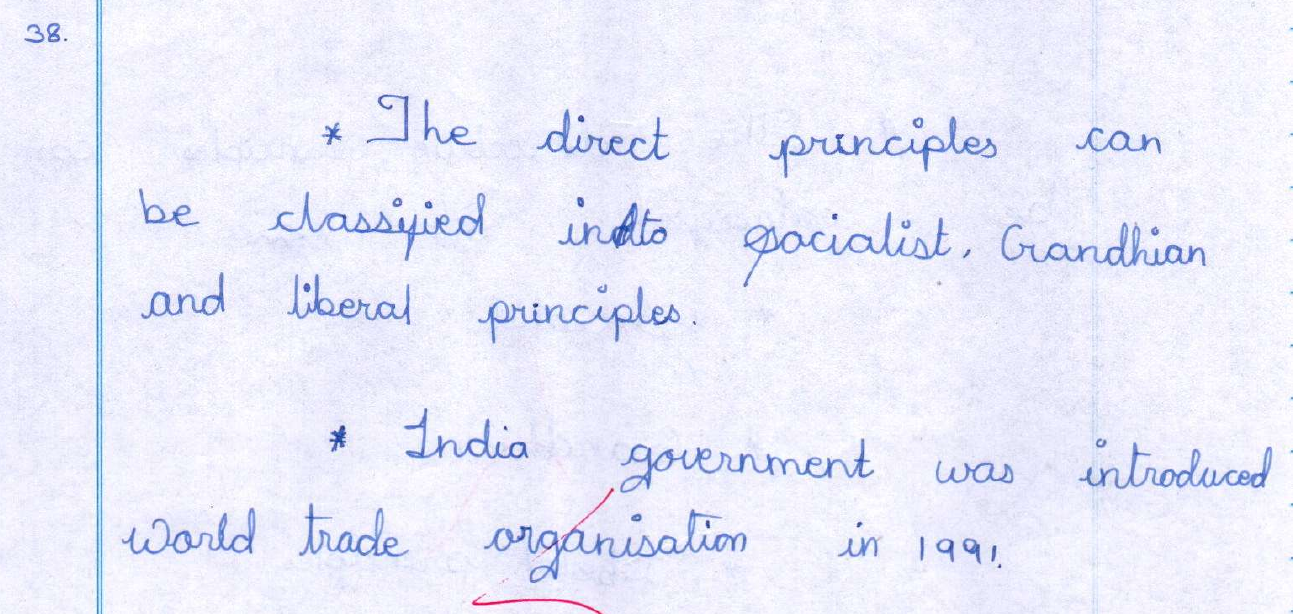 38.
* The direct principles can
be classified into socialist, Gandhian
and liberal principles.
* India government was introduced
world trade organisation in 1991.